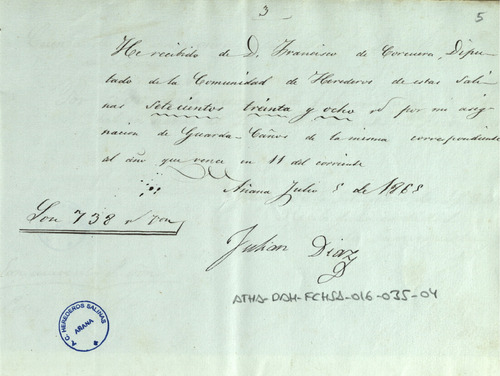 3
5
He recibido de D. Francisco de Corcuera, Dipu-
tado de la Comunidad de Herederos de estas Sali-
nas setecientos treinta y ocho rs por mi asig-
nacion de Guarda-Caños de la misma correspondiente
al año que vence en 11 del corriente
Añana Julio 5 de 1865
Son 738 rs von
Julian Diaz
ATHA-DAH-FCHSA-016-035-04
A.C. HEREDEROS SALINAS
AÑANA